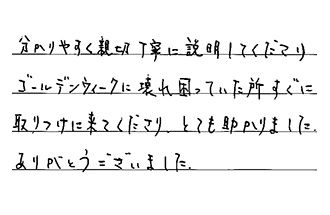 分かりやすく親切丁寧に説明してくださり
ゴールデンウィークに壊れ困っていた所すぐに
取りつけに来てくださり、とても助かりました。
ありがとうございました。